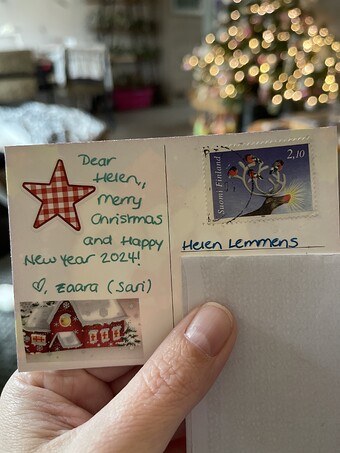 Dear
Helen,,
Merry
Christmas
and Happy
New Year 2024!
♡, Eaara (Sari)
2,10
Suomi Finland
Helen Lemmens